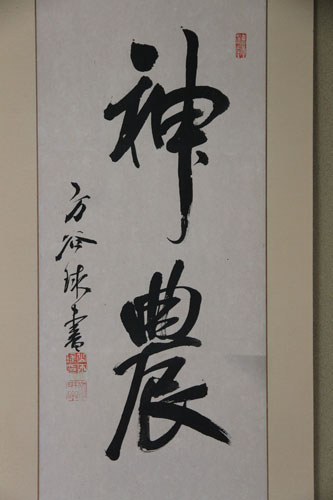 神農
方谷球書